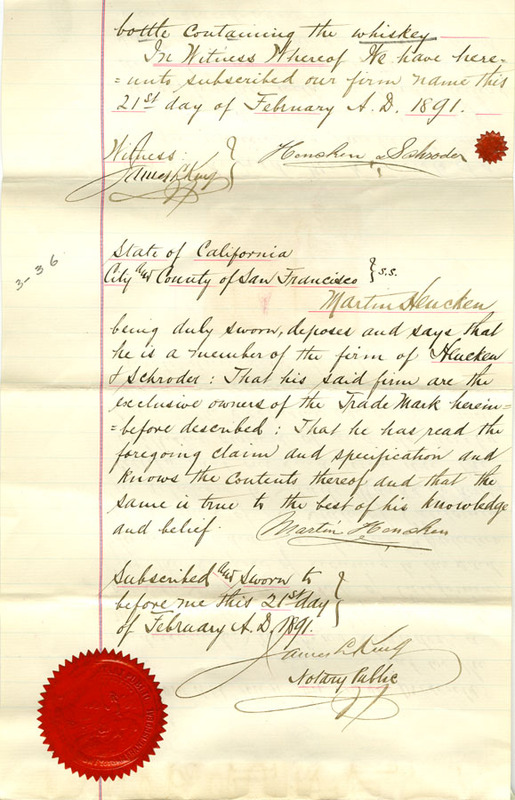 bottle containing the whiskey
In Witness Whereof We have here=
=unto subscribed our firm name this
21st day of February A.D. 1891.
Witness: Hencken & Schroder
James L King
3-36
State of California
City and County of San Francisco } s.s.
Martin Hencken
being duly sworn, deposes and says that
he is a member of the firm of Hencken
& Schroder: That his said firm are the
exclusive owners of the Trade Mark herein=
=before described: That he has read the
foregoing claim and specification and
knows the contents thereof and that the
same is true to the best of his knowledge
and belief Martin Hencken
Subscribed and Sworn to
before me this 21st day
of February A.D. 1891.
James L King
Notary Public